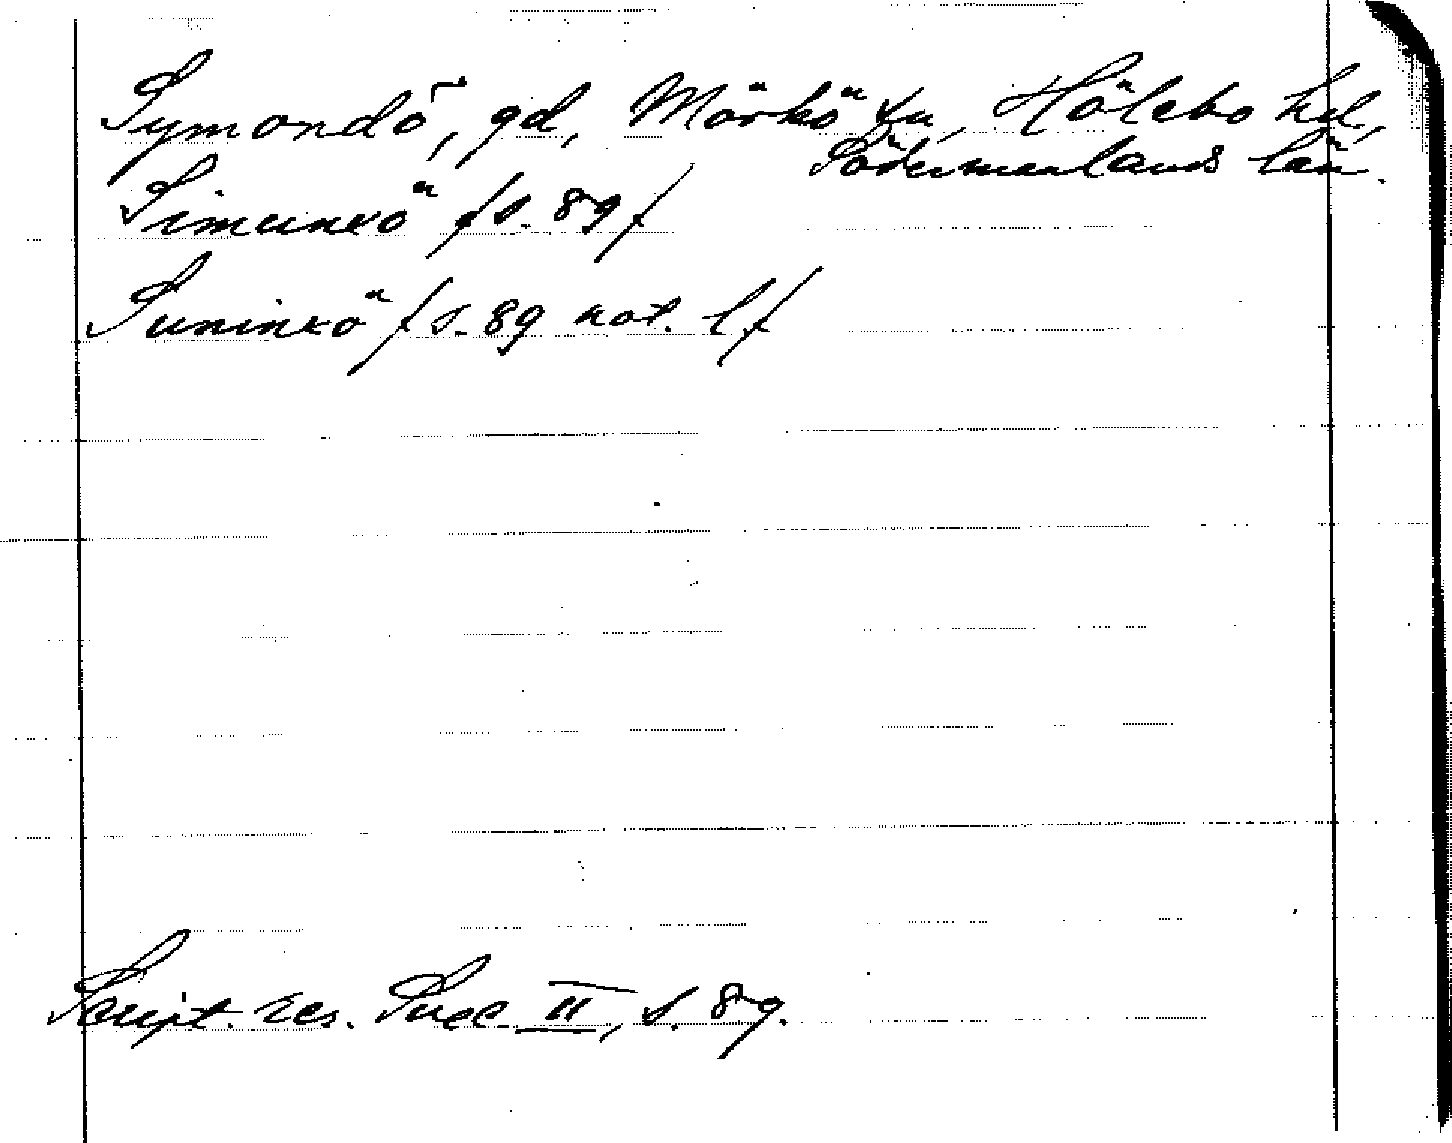 Symondö, gd, Mörkö sn, Hölebo hd,
Södermanlands län.
Simunxö /s. 89/
Suninxö /s. 89 not. l/
Script. res. Suec. II, s. 89.